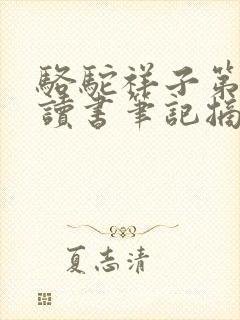 駱駝祥子第
讀書筆記摘
夏志清